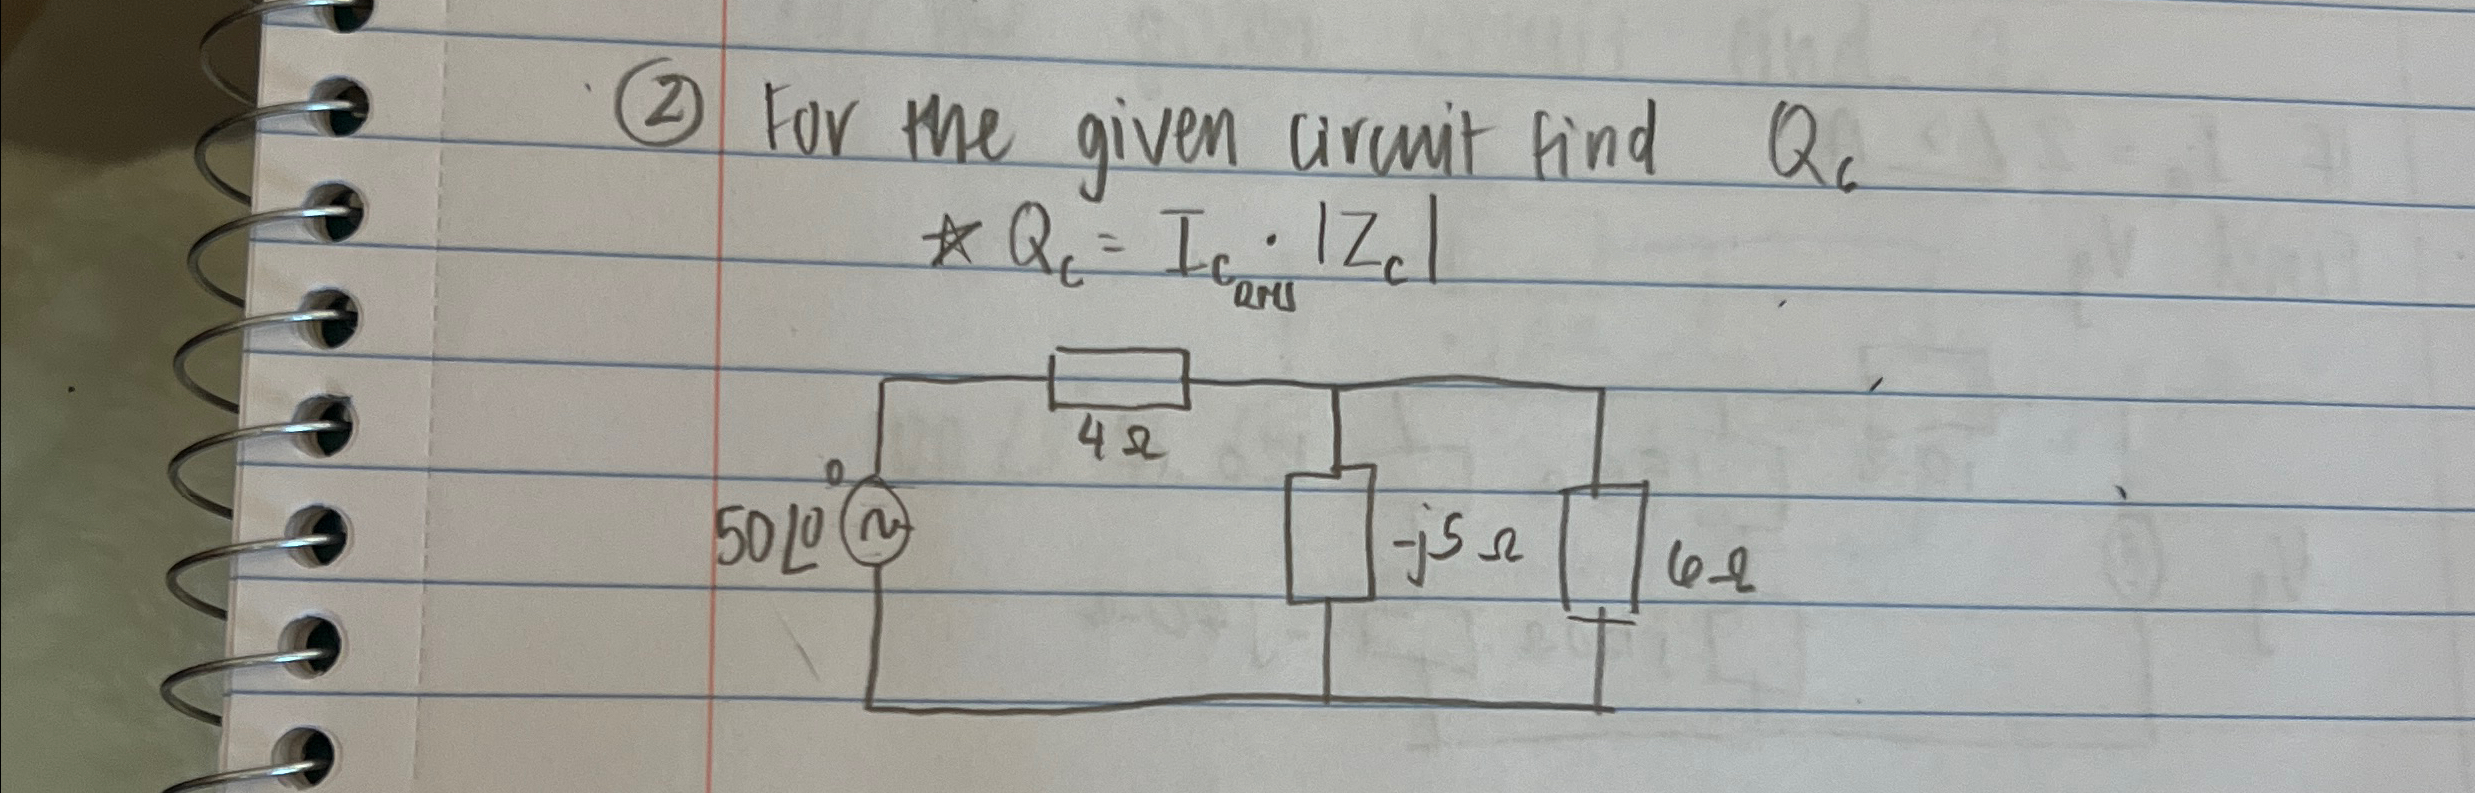 ② For the given circuit find Qc
☆ Qc = Ic RMS · |Zc|
4 Ω
50∠0°
-j5 Ω
6 Ω